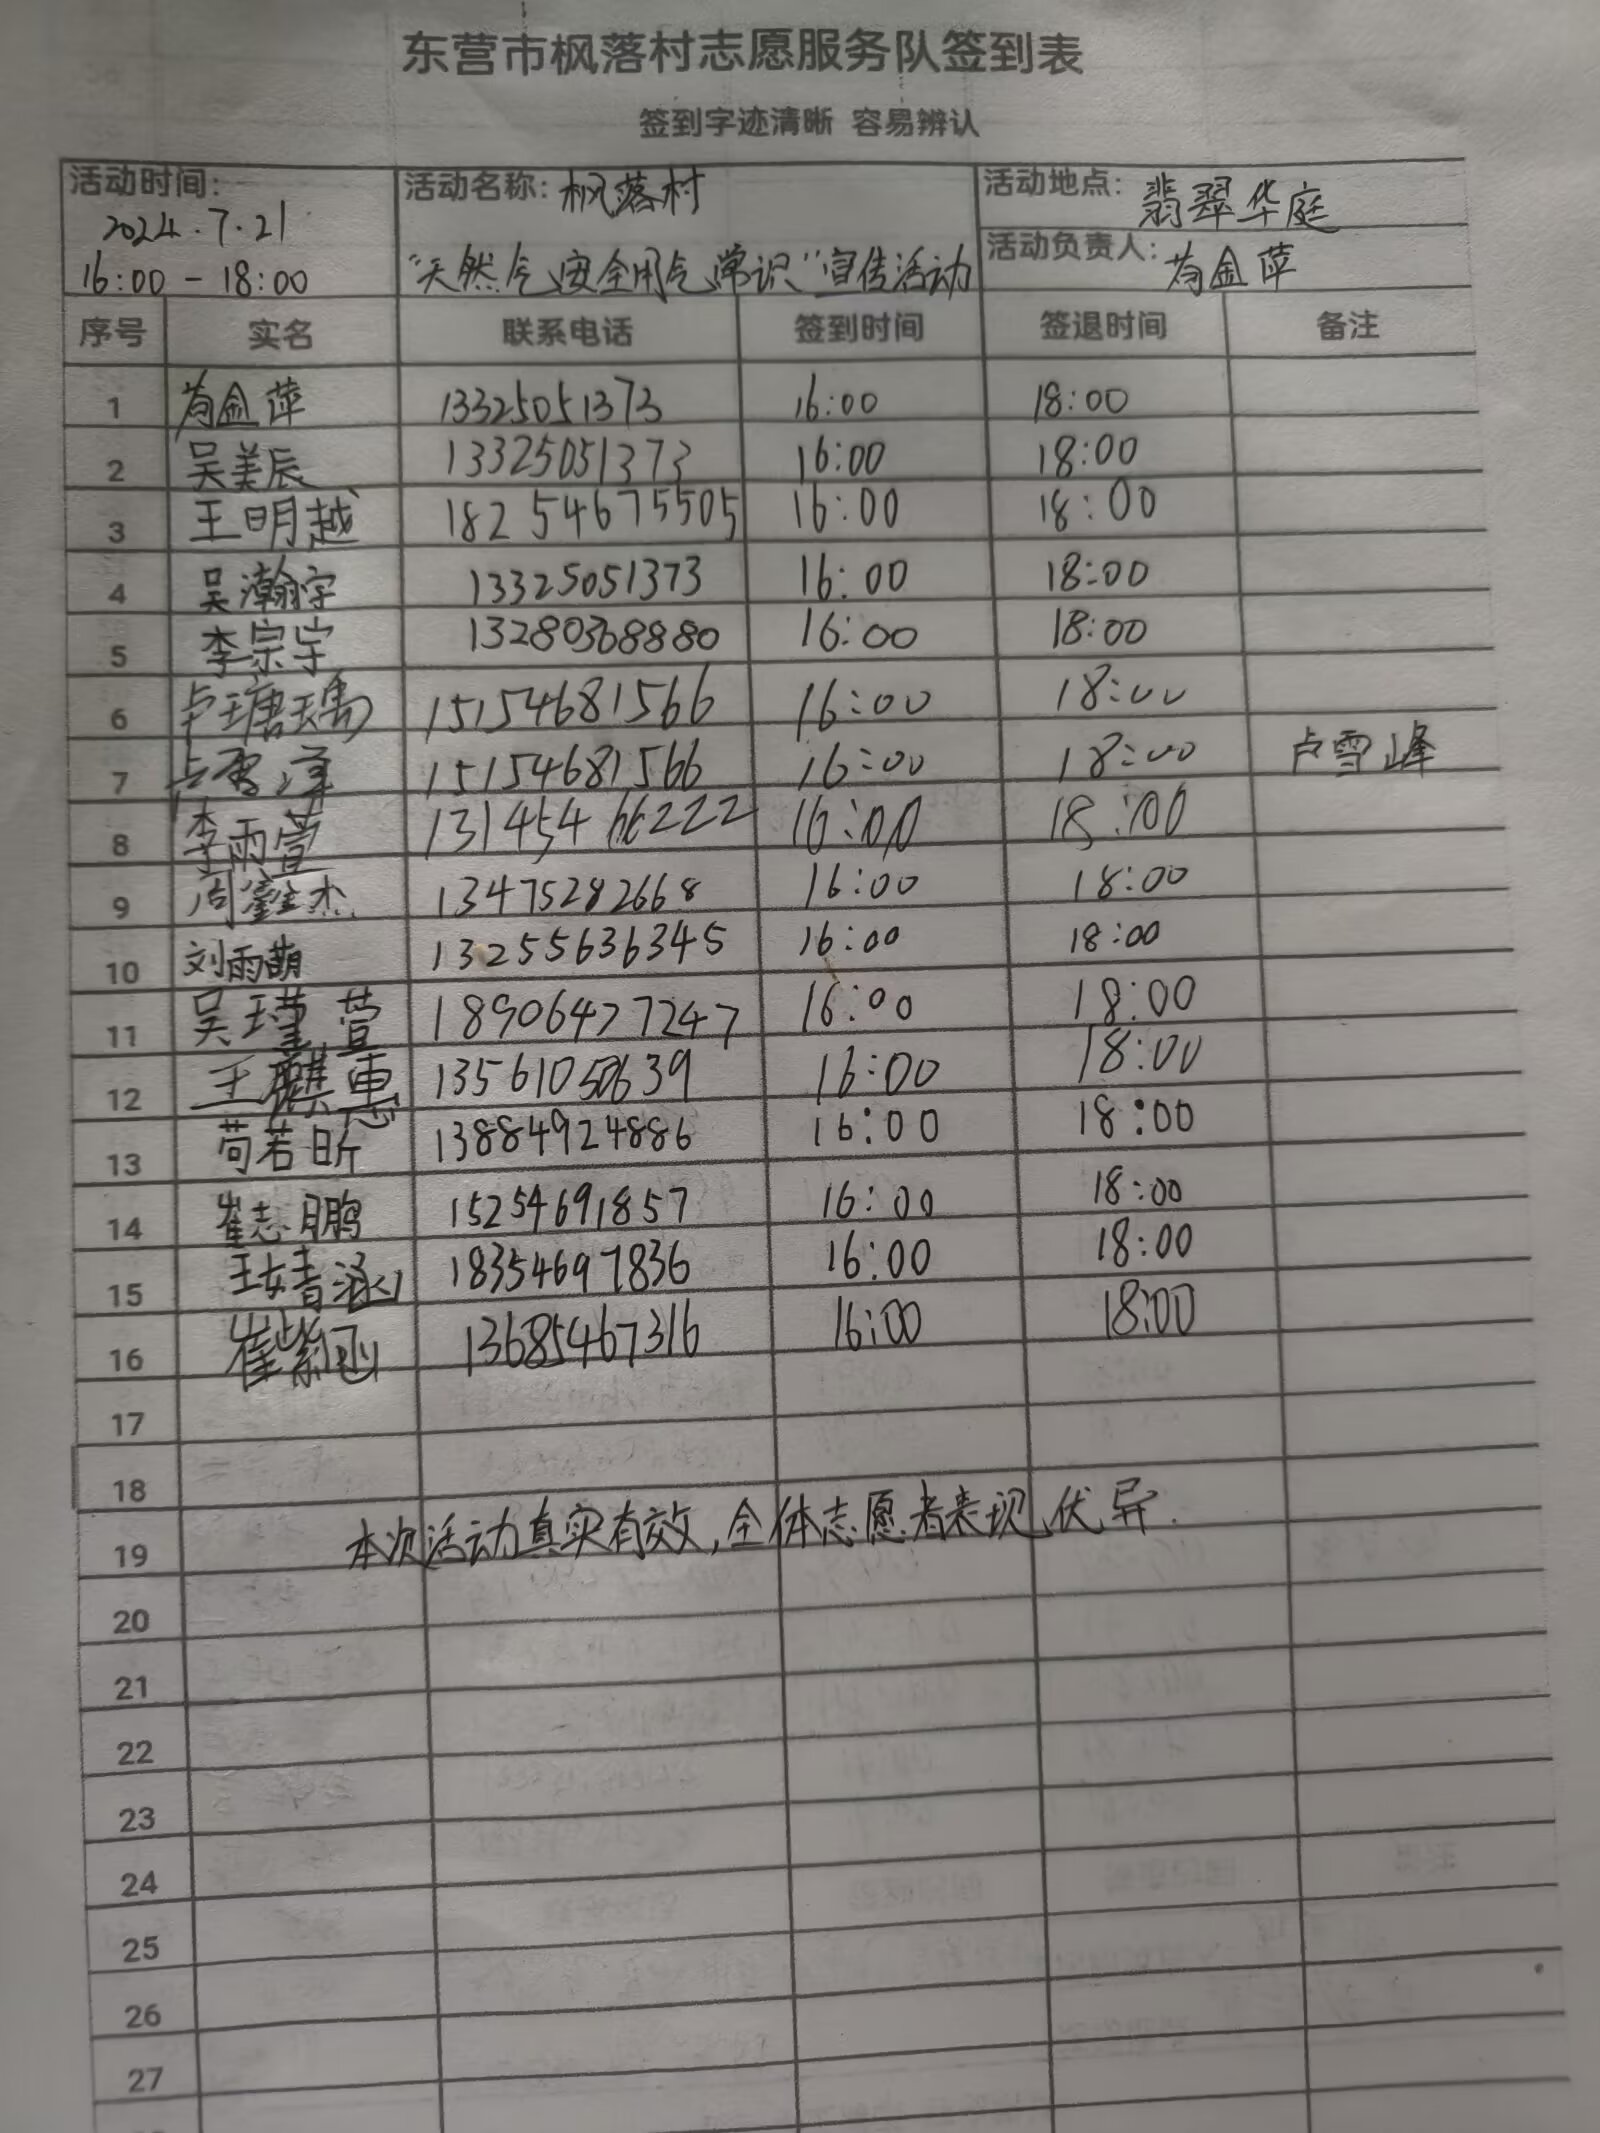 东营市枫落村志愿服务队签到表
签到字迹清晰 容易辨认
活动时间: 2024.7.21 16:00-18:00
活动名称: 枫落村 "天然气、安全用气常识"宣传活动
活动地点: 翡翠华庭
活动负责人: 苟金萍
序号 实名 联系电话 签到时间 签退时间 备注
1 苟金萍 13325051373 16:00 18:00
2 吴美辰 13325051373 16:00 18:00
3 王明越 18254675505 16:00 18:00
4 吴瀚宇 13325051373 16:00 18:00
5 李宗宇 13280368880 16:00 18:00
6 卢瑭瑀 15154681566 16:00 18:00
7 卢雪峰 15154681566 16:00 18:00 卢雪峰
8 李雨萱 13145466222 16:00 18:00
9 周鑫杰 13475282668 16:00 18:00
10 刘雨萌 13255636345 16:00 18:00
11 吴瑾萱 18906477247 16:00 18:00
12 王麒惠 13561050639 16:00 18:00
13 苟若昕 13884924886 16:00 18:00
14 崔志鹏 15254691857 16:00 18:00
15 王婧涵 18354697836 16:00 18:00
16 崔紫函 13685467316 16:00 18:00
17
18
19 本次活动真实有效,全体志愿者表现优异.
20
21
22
23
24
25
26
27